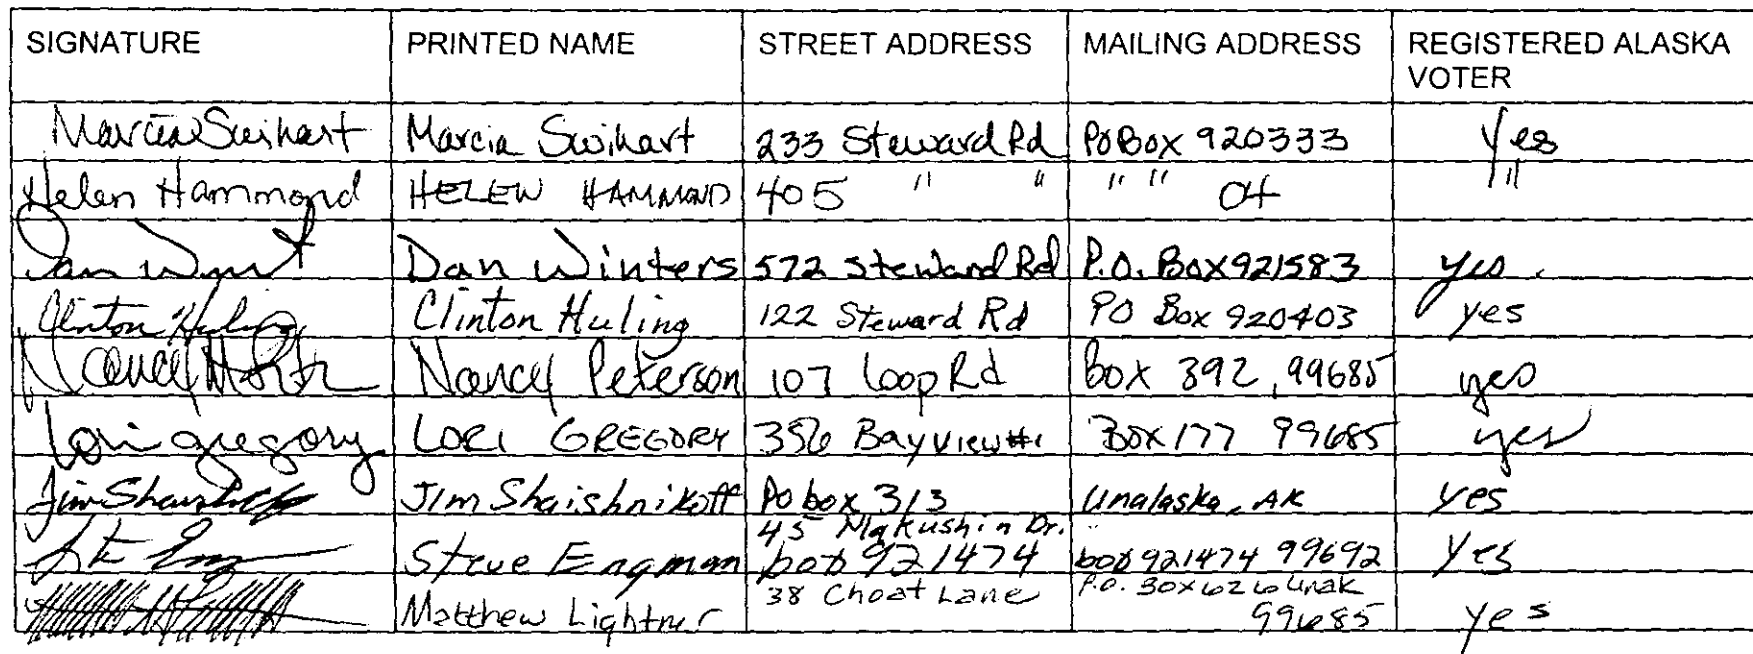 SIGNATURE PRINTED NAME STREET ADDRESS MAILING ADDRESS REGISTERED ALASKA VOTER
Marcia Swihart Marcia Swihart 233 Steward Rd PO Box 920333 Yes
Helen Hammond HELEN HAMMOND 405 " " " " 04 "
Dan Winters 572 Steward Rd P.O. Box 921583 yes
Clinton Huling Clinton Huling 122 Steward Rd PO Box 920403 yes
Nancy Nancy Peterson 107 Loop Rd Box 392, 99685 yes
Lori Gregory LORI GREGORY 356 Bayview #1 Box 177 99685 yes
Jim Jim Shaishnikoff Po box 313 Unalaska, AK yes
Steve Engman 45 Makushin Dr. box 921474 box 921474 99692 Yes
Matthew Lightner 38 Choat Lane P.O. Box 626 Unak 99685 yes